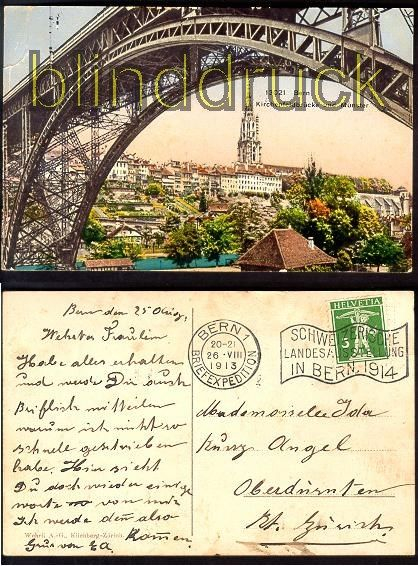 blinddruck
13021 Bern
Kirchenfeldbrücke und Münster
Bern den 25 Aug.
Wertes Fräulein
Habe alles erhalten
und werde Dir auch
Brieflich mitteilen
warum ich nicht so
schnell geschrieben
habe. Hier sieht
Du doch wieder einige
worte von mir
Ich werde den also
Kommen.
Gruss von
Wehrli A.-G., Kilchberg-Zürich.
BERN 1
20-21
26. VIII
1913
BRIEFEXPEDITION
HELVETIA
5
SCHWEIZERISCHE
LANDESAUSSTELLUNG
IN BERN. 1914
Mademoiselle Ida
Kunz Angel
Oberdürnten
Kt. Zürich